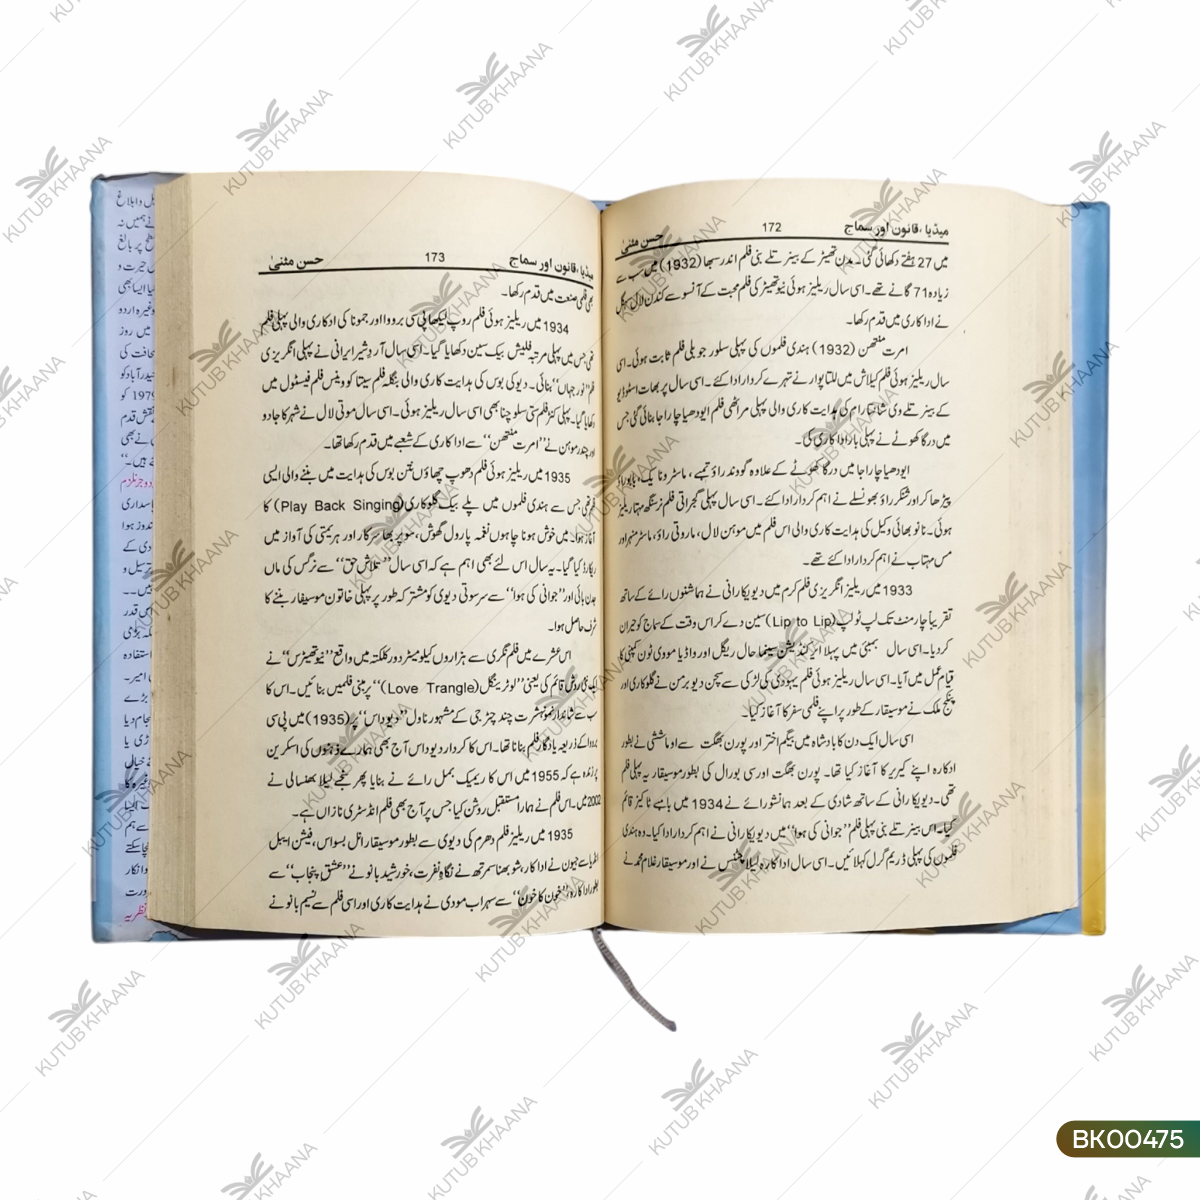 میڈیا، قانون اور سماج 172 حسن مثنیٰ
میں 27 ہفتے دکھائی گئی۔ مدن تھیٹر کے بینر تلے بنی فلم اندر سبھا (1932) میں سب سے
زیادہ 71 گانے تھے۔ اسی سال ریلیز ہوئی نیو تھیٹر کی فلم محبت کے آنسو سے کندن لال سہگل
نے اداکاری میں قدم رکھا۔
امرت منتھن (1932) ہندی فلموں کی پہلی سلور جوبلی فلم ثابت ہوئی۔ اسی
سال ریلیز ہوئی فلم کیلاش میں للتا پوار نے تہرے کردار ادا کئے۔ اسی سال پربھات اسٹوڈیو
کے بینر تلے وی شانتارام کی ہدایت کاری والی پہلی مراٹھی فلم ایودھیا چا راجا بنائی گئی جس
میں درگا کھوٹے نے پہلی بار اداکاری کی۔
ایودھیا چا راجا میں درگا کھوٹے کے علاوہ گووند راؤ ٹیمبے، ماسٹر ونایک، بابوراؤ
پیڑھا کر اور شنکر راؤ بھونسلے نے اہم کردار ادا کئے۔ اسی سال پہلی گجراتی فلم نرسنگھ مہتا ریلیز
ہوئی۔ نانو بھائی وکیل کی ہدایت کاری والی اس فلم میں موہن لال، ماروتی راؤ، ماسٹر منہر اور
مس مہتاب نے اہم کردار ادا کئے تھے۔
1933 میں ریلیز انگریزی فلم کرم میں دیویکا رانی نے ہمانشو رائے کے ساتھ
تقریباً چار منٹ تک لپ ٹو لپ (Lip to Lip) سین دے کر اس وقت کے سماج کو حیران
کر دیا۔ اسی سال بمبئی میں پہلا ائیر کنڈیشن سینما ہال ریگل اور واڈیا مووی ٹون کمپنی کا
قیام عمل میں آیا۔ اسی سال ریلیز ہوئی فلم یہودی کی لڑکی سے سچن دیو برمن نے گلوکاری اور
پنکج ملک نے موسیقار کے طور پر اپنے فلمی سفر کا آغاز کیا۔
اسی سال ایک دن کا بادشاہ میں بیگم اختر اور پورن بھگت سے اوما ششی نے بطور
ادکارہ اپنے کیریر کا آغاز کیا تھا۔ پورن بھگت اور سی بورال کی بطور موسیقار یہ پہلی فلم
تھی۔ دیویکا رانی کے ساتھ شادی کے بعد ہمانشو رائے نے 1934 میں بامبے ٹاکیز قائم
کیا۔ اس بینر تلے بنی پہلی فلم ’’جوانی کی ہوا‘‘ میں دیویکا رانی نے اہم کردار ادا کیا۔ وہ ہندی
فلموں کی پہلی ڈریم گرل کہلائیں۔ اسی سال اداکارہ لیلا چٹنس نے اور موسیقار غلام محمد نے
میڈیا، قانون اور سماج 173 حسن مثنیٰ
بھی فلمی صنعت میں قدم رکھا۔
1934 میں ریلیز ہوئی فلم روپ لیکھا پی سی بروا اور جمونا کی ادکاری والی پہلی فلم
تھی جس میں پہلی مرتبہ فلیش بیک سین دکھایا گیا۔ اسی سال آردشیر ایرانی نے پہلی انگریزی
فلم ’’نور جہاں‘‘ بنائی۔ دیوکی بوس کی ہدایت کاری والی بنگلہ فلم سیتا کو وینس فلم فیسٹول میں
دکھایا گیا۔ پہلی کنڑ فلم ستی سلوچنا بھی اسی سال ریلیز ہوئی۔ اسی سال موتی لال نے شہر کا جادو
اور چندر موہن نے ’’امرت منتھن‘‘ سے اداکاری کے شعبے میں قدم رکھا تھا۔
1935 میں ریلیز ہوئی فلم دھوپ چھاؤں نتن بوس کی ہدایت میں بننے والی ایسی
فلم تھی جس سے ہندی فلموں میں پلے بیک گلوکاری (Play Back Singing) کا
آغاز ہوا۔ میں خوش ہونا چاہوں نغمہ پارول گھوش، سوپربھا سرکار اور ہریمتی کی آواز میں
ریکارڈ کیا گیا۔ یہ سال اس لئے بھی اہم ہے کہ اسی سال ’’تلاش حق‘‘ سے نرگس کی ماں
جدن بائی اور ’’جوانی کی ہوا‘‘ سے سرسوتی دیوی کو مشترکہ طور پر پہلی خاتون موسیقار بننے کا
شرف حاصل ہوا۔
اس عشرے میں فلم نگری سے ہزاروں کیلومیٹر دور کلکتہ میں واقع ’’نیو تھیٹرس‘‘ نے
ایک نئی روش قائم کی یعنی ’’لو ٹرینگل (Love Trangle)‘‘ پر مبنی فلمیں بنائیں۔ اس کا
سب سے شاندار نمونہ شرت چندر چٹرجی کے مشہور ناول ’’دیوداس‘‘ پر (1935) میں پی سی
بروا کے ذریعہ یادگار فلم بنانا تھا۔ اس کا کردار دیوداس آج بھی ہمارے ذہنوں کی اسکرین
پر زندہ ہے کہ 1955 میں اس کا ریمیک بمل رائے نے بنایا پھر سنجے لیلا بھنسالی نے
2002 میں۔ اس فلم نے ہمارا مستقبل روشن کیا جس پر آج بھی فلم انڈسٹری نازاں ہے۔
1935 میں ریلیز فلم دھرم کی دیوی سے بطور موسیقار انل بسواس، فیشن ایبل
انڈیا سے جیون نے اداکار، شوبھنا سمرتھ نے نگاہ نفرت، خورشید بانو نے ’’عشق پنجاب‘‘ سے
بطور اداکارہ، ’’خون کا خون‘‘ سے سہراب مودی نے ہدایت کاری اور اسی فلم سے نسیم بانو نے
KUTUB KHAANA
BK00475